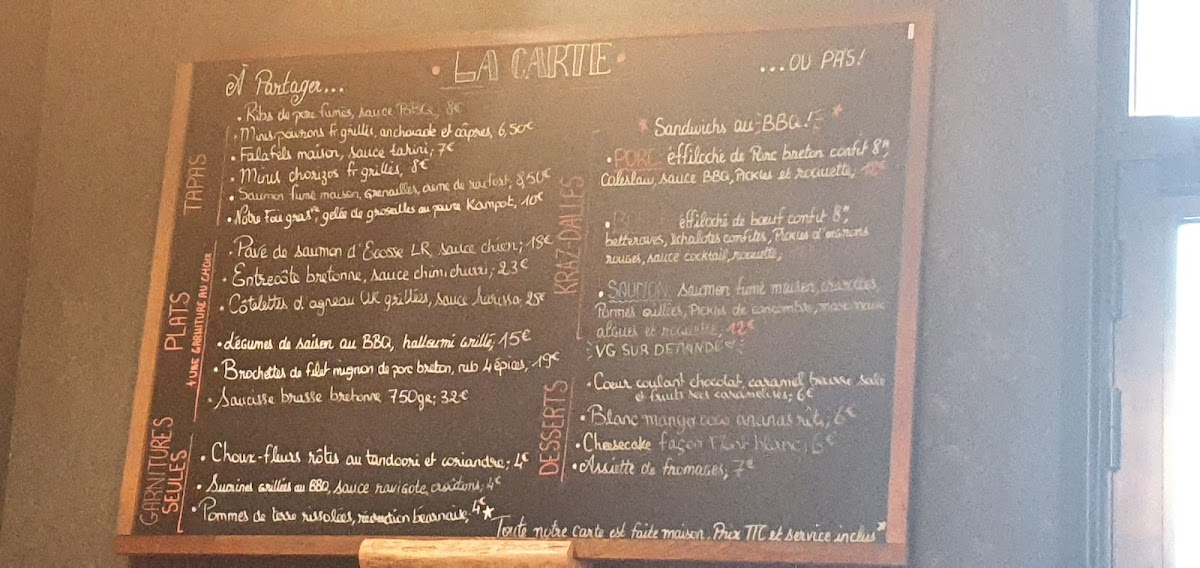 LA CARTE
À Partager...
TAPAS
• Ribs de porc fumés, sauce BBQ, 8€
• Minis poivrons frs grillés, anchoïade et câpres, 6,50€
• Falafels maison, sauce tahini, 7€
• Minis chorizos frs grillés, 8€
• Saumon fumé maison, grenailles, crème de raifort, 8,50€
• Notre Foie gras, gelée de groseilles au poivre Kampot, 10€
PLATS
+ UNE GARNITURE AU CHOIX
• Pavé de saumon d'Écosse LR, sauce chien; 18€
• Entrecôte bretonne, sauce chimichurri; 23€
• Côtelettes d'agneau UK grillées, sauce harissa,
• Légumes de saison au BBQ, halloumi grillé; 15€
• Brochettes de filet mignon de porc breton, rub 4 épices, 19€
• Saucisse brasse bretonne 750gr; 32€
GARNITURES
SEULES
• Choux-fleurs rôtis au tandoori et coriandre; 4€
• Sucrines grillées au BBQ, sauce ravigote, croûtons; 4€
• Pommes de terre rissolées, réduction béarnaise, 4€
...OU PAS!
KRAZ-DALLES
Sandwichs au BBQ!
• PORC éffiloché de Porc breton confit 8h,
Coleslaw, sauce BBQ, Pickles et roquette,
éffiloché de bœuf confit 8h,
betteraves, échalotes confites, Pickles d'oignons
rouges, sauce cocktail, roquette,
• SAUMON saumon fumé maison, crevettes,
Pommes Pickles de concombre,
algues et roquette, 12€
VG SUR DEMANDE
DESSERTS
• Cœur coulant chocolat, caramel beurre salé
et fruits secs caramélisés; 6€
• Blanc manger coco ananas rôti; 6€
• Cheesecake façon Mont blanc, 6€
• Assiette de fromages, 7€
*Toute notre carte est faite maison. Prix TTC et service inclus*